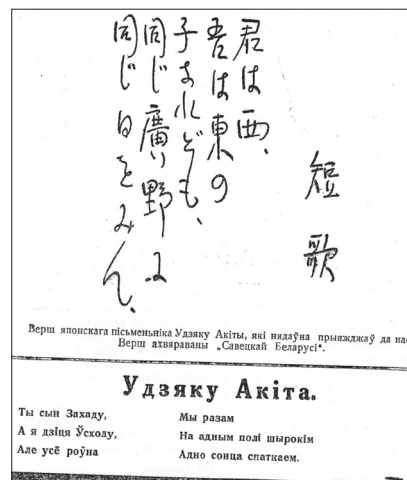 短歌
君は西、
吾は東の
子なれども、
同じ廣い野に
同じ日をみん、
Верш японскага пісьменьніка Удзяку Акіты, які нядаўна прыяжджаў да нас
Верш ахвяраваны „Савецкай Беларусі".
Удзяку Акіта.
Ты сын Захаду,
А я дзіця Ўсходу,
Але усё роўна
Мы разам
На адным полі шырокім
Адно сонца спаткаем.